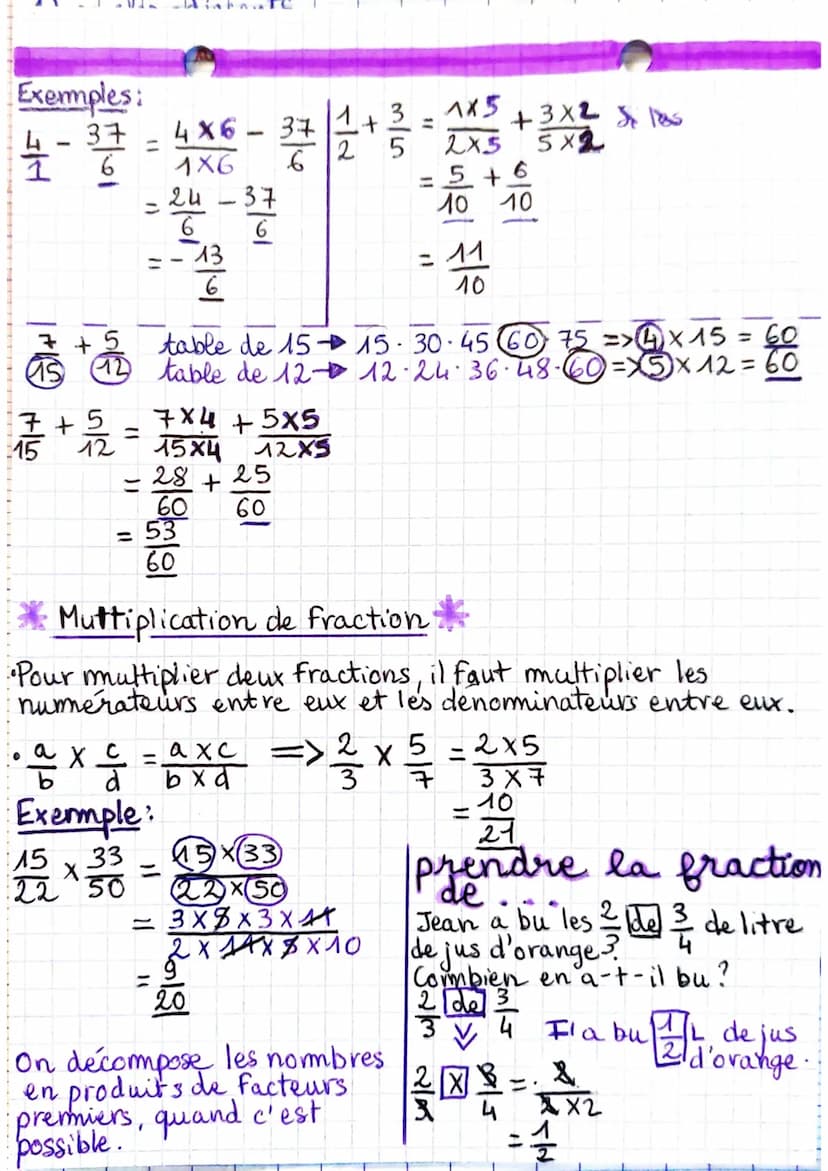 Exemples:
4/1 - 37/6 = 4×6/1×6 - 37/6
= 24/6 - 37/6
= - 13/6
1/2 + 3/5 = 1×5/2×5 + 3×2/5×2
= 5/10 + 6/10
= 11/10
7/15 + 5/12 table de 15 → 15 · 30 · 45 60 75 => 4 × 15 = 60
table de 12 → 12 · 24 · 36 · 48 · 60 => 5 × 12 = 60
7/15 + 5/12 = 7×4/15×4 + 5×5/12×5
= 28/60 + 25/60
= 53/60
Multiplication de fraction
• Pour multiplier deux fractions, il faut multiplier les
numérateurs entre eux et les dénominateurs entre eux.
• a/b × c/d = a×c/b×d => 2/3 × 5/7 = 2×5/3×7
= 10/21
Exemple:
15/22 × 33/50 = 15×33/22×50
= 3×5×3×11/2×11×5×10
= 9/20
On décompose les nombres
en produits de facteurs
premiers, quand c'est
possible.
prendre la fraction
de ....
Jean a bu les 2 de 3/4 de litre
de jus d'orange?
Combien en a-t-il bu?
2/3 de 3/4
Il a bu 1/2 L de jus
d'orange.
2/3 × 3/4 = 2/2×2
= 1/2